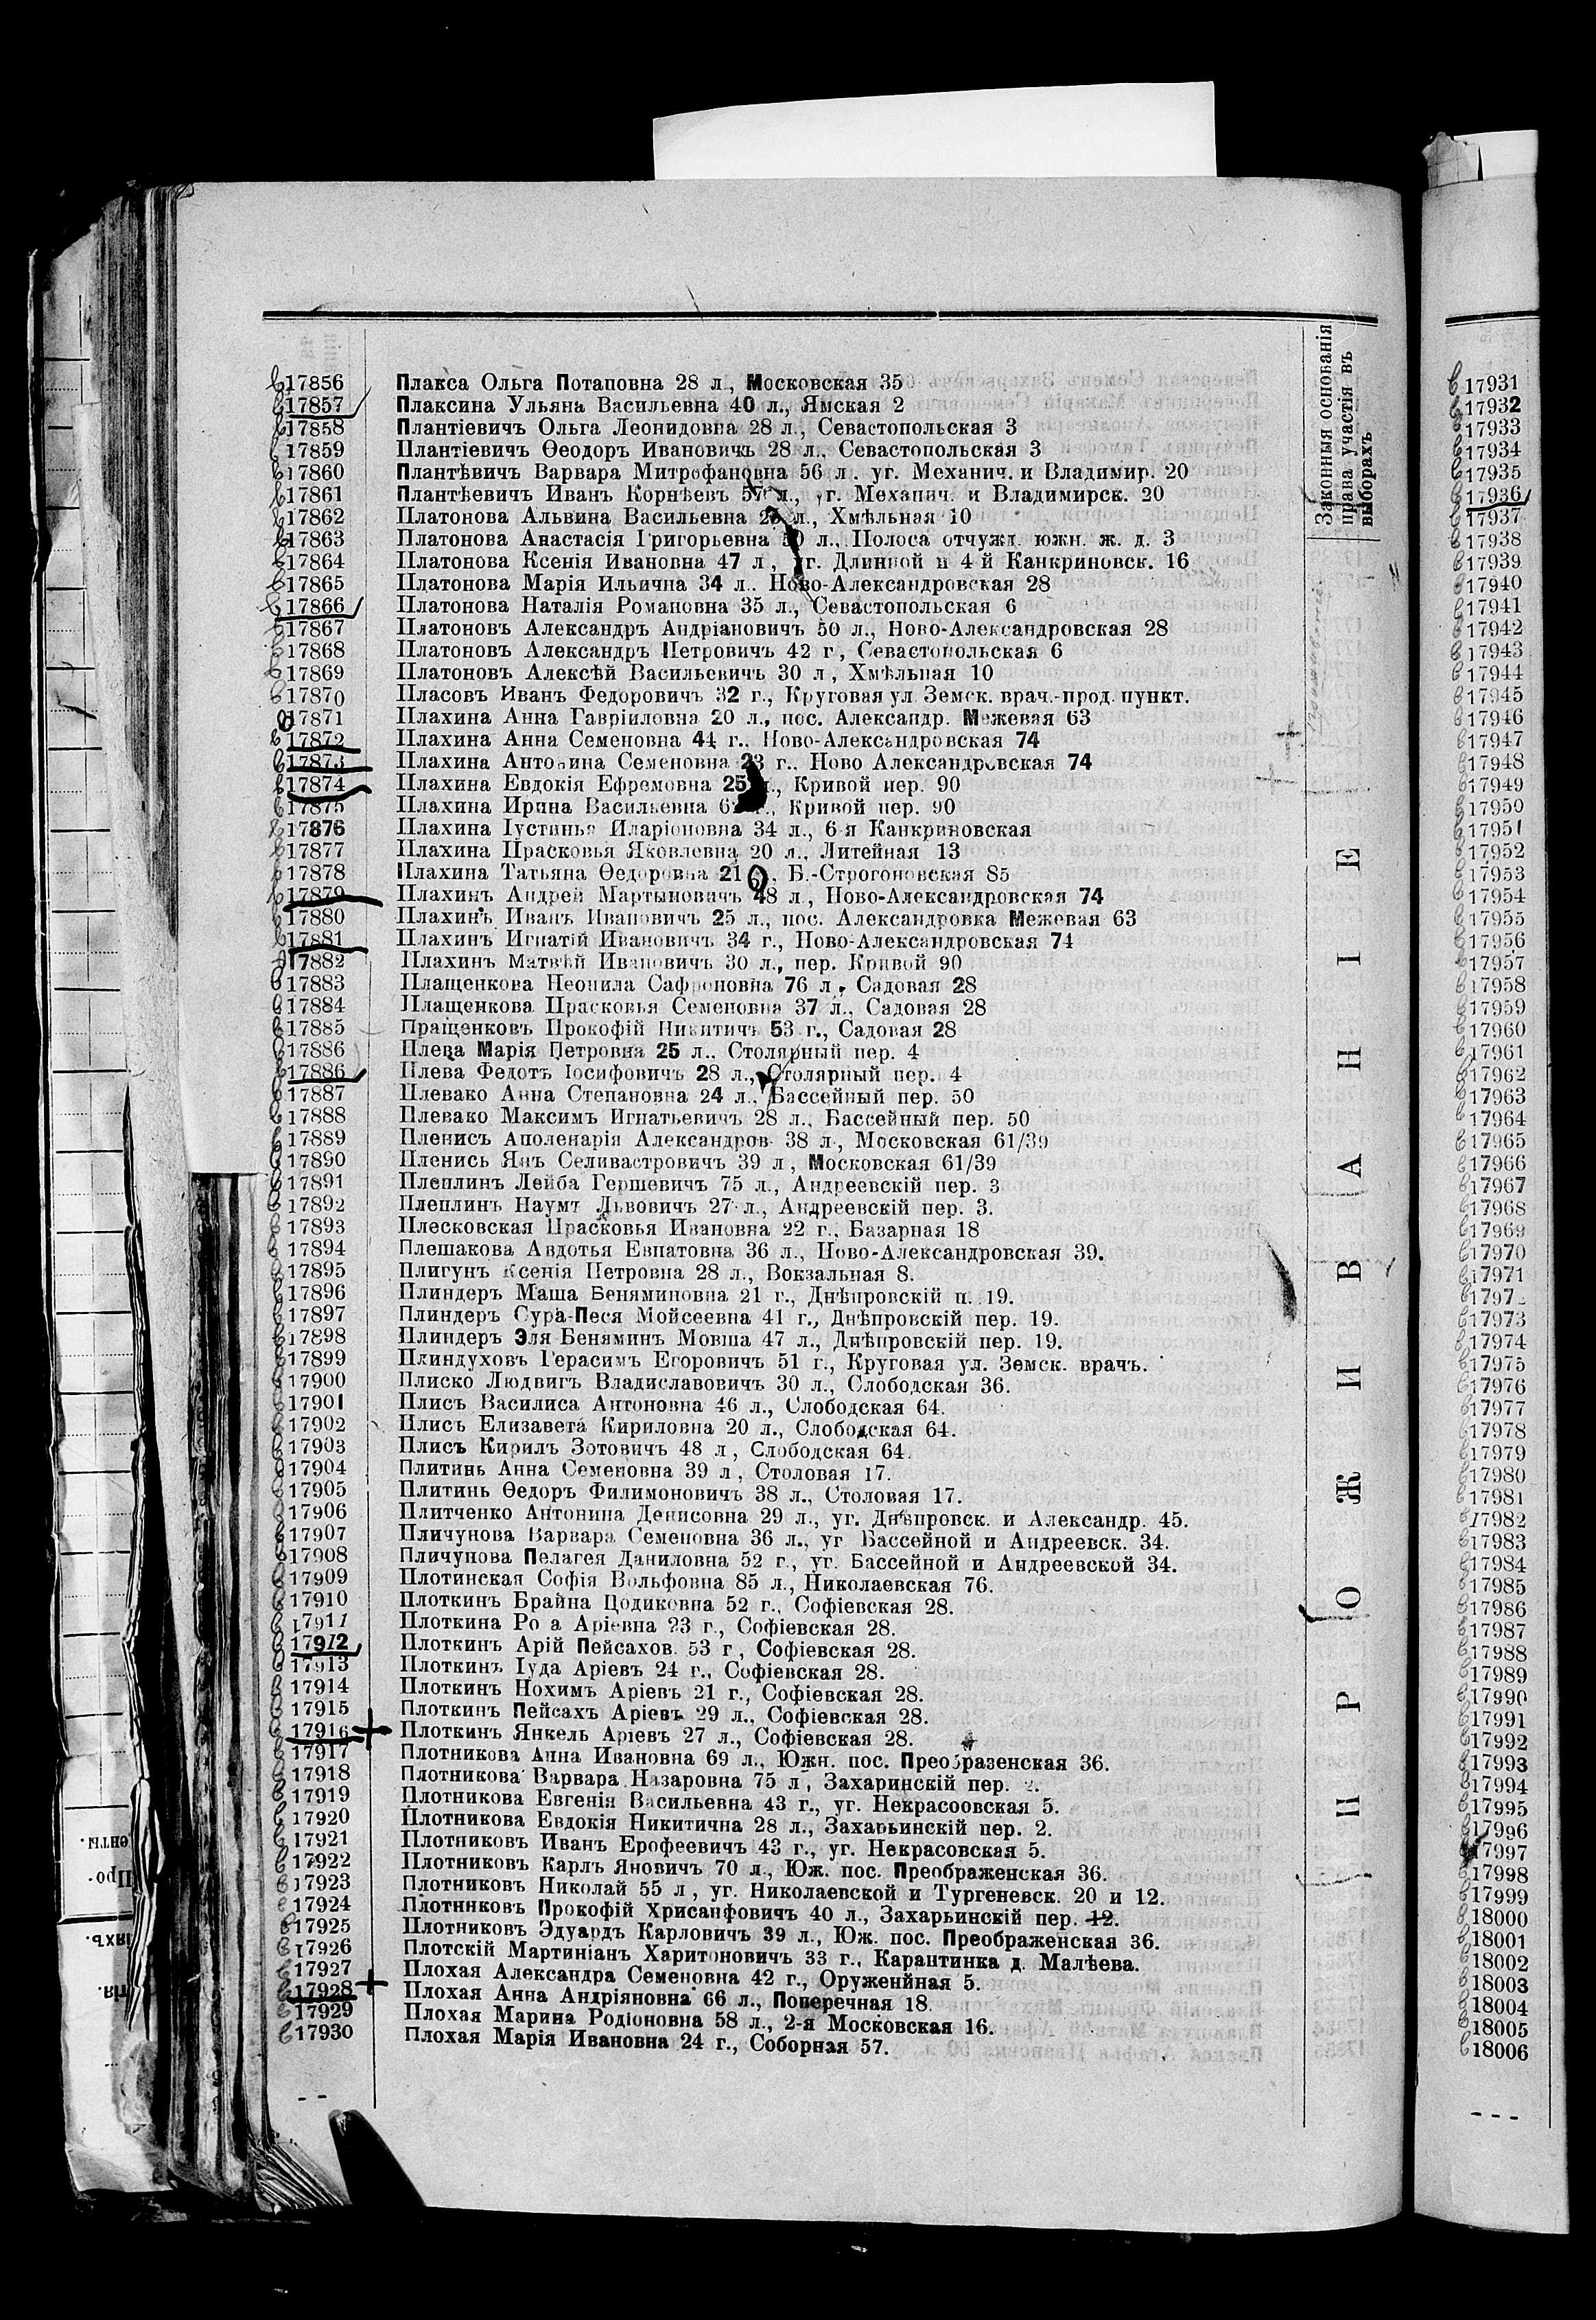 Законныя основанія
права участія въ
выборахъ
ПРОЖИВАНІЕ
17856 Плакса Ольга Потаповна 28 л., Московская 35
17857 Плаксина Ульяна Васильевна 40 л., Ямская 2
17858 Плантіевичъ Ольга Леонидовна 28 л., Севастопольская 3
17859 Плантіевичъ Ѳеодоръ Ивановичъ 28 л., Севастопольская 3
17860 Плантѣвичъ Варвара Митрофановна 56 л. уг. Механич. и Владимир. 20
17861 Плантѣевичъ Иванъ Корнѣевъ 57 л., уг. Механич. и Владимирск. 20
17862 Платонова Альвина Васильевна л., Хмѣльная 10
17863 Платонова Анастасія Григорьевна 50 л., Полоса отчужд. южн. ж. д. 3
17864 Платонова Ксенія Ивановна 47 л, уг. Длинной и 4-й Канкриновск. 16
17865 Платонова Марія Ильична 34 л.. Ново-Александровская 28
17866 Платонова Наталія Романовна 35 л., Севастопольская 6
17867 Платоновъ Александръ Андріановичъ 50 л., Ново-Александровская 28
17868 Платоновъ Александръ Петровичъ 42 г, Севастопольская 6
17869 Платоновъ Алексѣй Васильевичъ 30 л, Хмѣльная 10
17870 Пласовъ Иванъ Федоровичъ 32 г., Круговая ул Земск. врач.-прод. пункт.
17871 Плахина Анна Гавріиловна 20 л., пос. Александр. Межевая 63
17872 Плахина Анна Семеновна 44 г.. Ново-Александровская 74
17873 Плахина Антонина Семеновна 23 г.. Ново Александровская 74
17874 Плахина Евдокія Ефремовна 25 л., Кривой пер. 90
17875 Плахина Ирина Васильевна Кривой пер. 90
17876 Плахина Іустинья Иларіоновна 34 л., 6-я Канкриновская
17877 Плахина Прасковья Яковлевна 20 л., Литейная 13
17878 Плахина Татьяна Ѳедоровна 21 Б.-Строгоновская 85
17879 Плахинъ Андрей Мартыновичъ 48 л, Ново-Александровская 74
17880 Плахинъ Иванъ Ивановичъ 25 л., пос. Александровка Межевая 63
17881 Плахинъ Игнатій Ивановичъ 34 г., Ново-Александровская 74
17882 Плахинъ Матвѣй Ивановичъ 30 л., пер. Кривой 90
17883 Плащенкова Неонила Сафроновна 76 л, Садовая 28
17884 Плащенкова Прасковья Семеновна 37 л., Садовая 28
17885 Пращенковъ Прокофій Никитичъ 53 г., Садовая 28
17886 Плева Марія Петровна 25 л.. Столярный пер. 4
17886 Плева Федотъ Іосифовичъ 28 л., Столярный пер. 4
17887 Плевако Анна Степановна 24 л., Бассейный пер. 50
17888 Плевако Максимъ Игнатьевичъ 28 л., Бассейный пер. 50
17889 Пленисъ Аполенарія Александров 38 л, Московская 61/39
17890 Пленись Янъ Селивастровичъ 39 л, Московская 61/39
17891 Плеплинъ Лейба Гершевичъ 75 л., Андреевскій пер. 3
17892 Плеплинъ Наумъ Львовичъ 27 л., Андреевскій пер. 3.
17893 Плесковская Прасковья Ивановна 22 г., Базарная 18
17894 Плешакова Авдотья Евпатовна 36 л., Ново-Александровская 39.
17895 Плигунъ Ксенія Петровна 28 л., Вокзальная 8.
17896 Плиндеръ Маша Беняминовна 21 г., Днѣпровскій п. 19.
17897 Плиндеръ Сура-Песя Мойсеевна 41 г., Днѣпровскій пер. 19.
17898 Плиндеръ Эля-Бенямннъ Мовша 47 л., Днѣпровскій пер. 19.
17899 Плиндуховъ Герасимъ Егоровичъ 51 г., Круговая ул. Земск. врачъ.
17900 Плиско Людвигъ Владиславовичъ 30 л., Слободская 36.
17901 Плисъ Василиса Антоновна 46 л., Слободская 64.
17902 Плись Елизавета Кириловна 20 л., Слободская 64.
17903 Плисъ Кирилъ Зотовичъ 48 л, Слободская 64.
17904 Плитинь Анна Семеновна 39 л, Столовая 17.
17905 Плитинь Ѳедоръ Филимоновичъ 38 л., Столовая 17.
17906 Плитченко Антонина Денисовна 29 л., уг. Днѣпровск. и Александр. 45.
17907 Пличунова Варвара Семеновна 36 л., уг Бассейной и Андреевск. 34.
17908 Пличунова Пелагея Даниловна 52 г., уг. Бассейной и Андреевской 34.
17909 Плотинская Софія Вольфовна 85 л., Николаевская 76.
17910 Плоткинъ Брайна Цодиковна 52 г., Софіевская 28.
17911 Плоткина Ро а Аріевна 23 г., Софіевская 28.
17912 Плоткинъ Арій Пейсахов. 53 г, Софіевская 28.
17913 Плоткинъ Іуда Аріевъ 24 г., Софіевская 28.
17914 Плоткинъ Нохимъ Аріевъ 21 г., Софіевская 28.
17915 Плоткинъ Пейсахъ Аріевъ 29 л., Софіевская 28.
17916 Плоткинъ Янкель Аріевъ 27 л., Софіевская 28.
17917 Плотникова Анна Ивановна 69 л., Южн. пос. Преобразенская 36.
17918 Плотникова Варвара Назаровна 75 л, Захаринскій пер. 2.
17919 Плотникова Евгенія Васильевна 43 г., уг. Некрасоовская 5.
17920 Плотникова Евдокія Никитична 28 л., Захарьинскій пер. 2.
17921 Плотниковъ Иванъ Ерофеевичъ 43 г., уг. Некрасовская 5.
17922 Плотниковъ Карлъ Яновичъ 70 л., Юж. пос. Преображенская 36.
17923 Плотниковъ Николай 55 л, уг. Николаевской и Тургеневск. 20 и 12.
17924 Плотниковъ Прокофій Хрисанфовичъ 40 л., Захарьинскій пер. 12.
17925 Плотниковъ Эдуардъ Карловичъ 39 л., Юж. пос. Преображенская 36.
17926 Плотскій Мартиніанъ Харитоновичъ 33 г., Карантинка д. Малѣева.
17927 Плохая Александра Семеновна 42 г., Оруженйная 5.
17928 Плохая Анна Андріяновна 66 л., Поперечная 18.
17929 Плохая Марина Родіоновна 58 л., 2-я Московская 16.
17930 Плохая Марія Ивановна 24 г., Соборная 57.
17931
17932
17933
17934
17935
17936
17937
17938
17939
17940
17941
17942
17943
17944
17945
17946
17947
17948
17949
17950
17951
17952
17953
17954
17955
17956
17957
17958
17959
17960
17961
17962
17963
17964
17965
17966
17967
17968
17969
17970
17971
1797
17973
17974
17975
17976
17977
17978
17979
17980
17981
17982
17983
17984
17985
17986
17987
17988
17989
17990
17991
17992
17993
17994
17995
17996
17997
17998
17999
18000
18001
18002
18003
18004
18005
18006